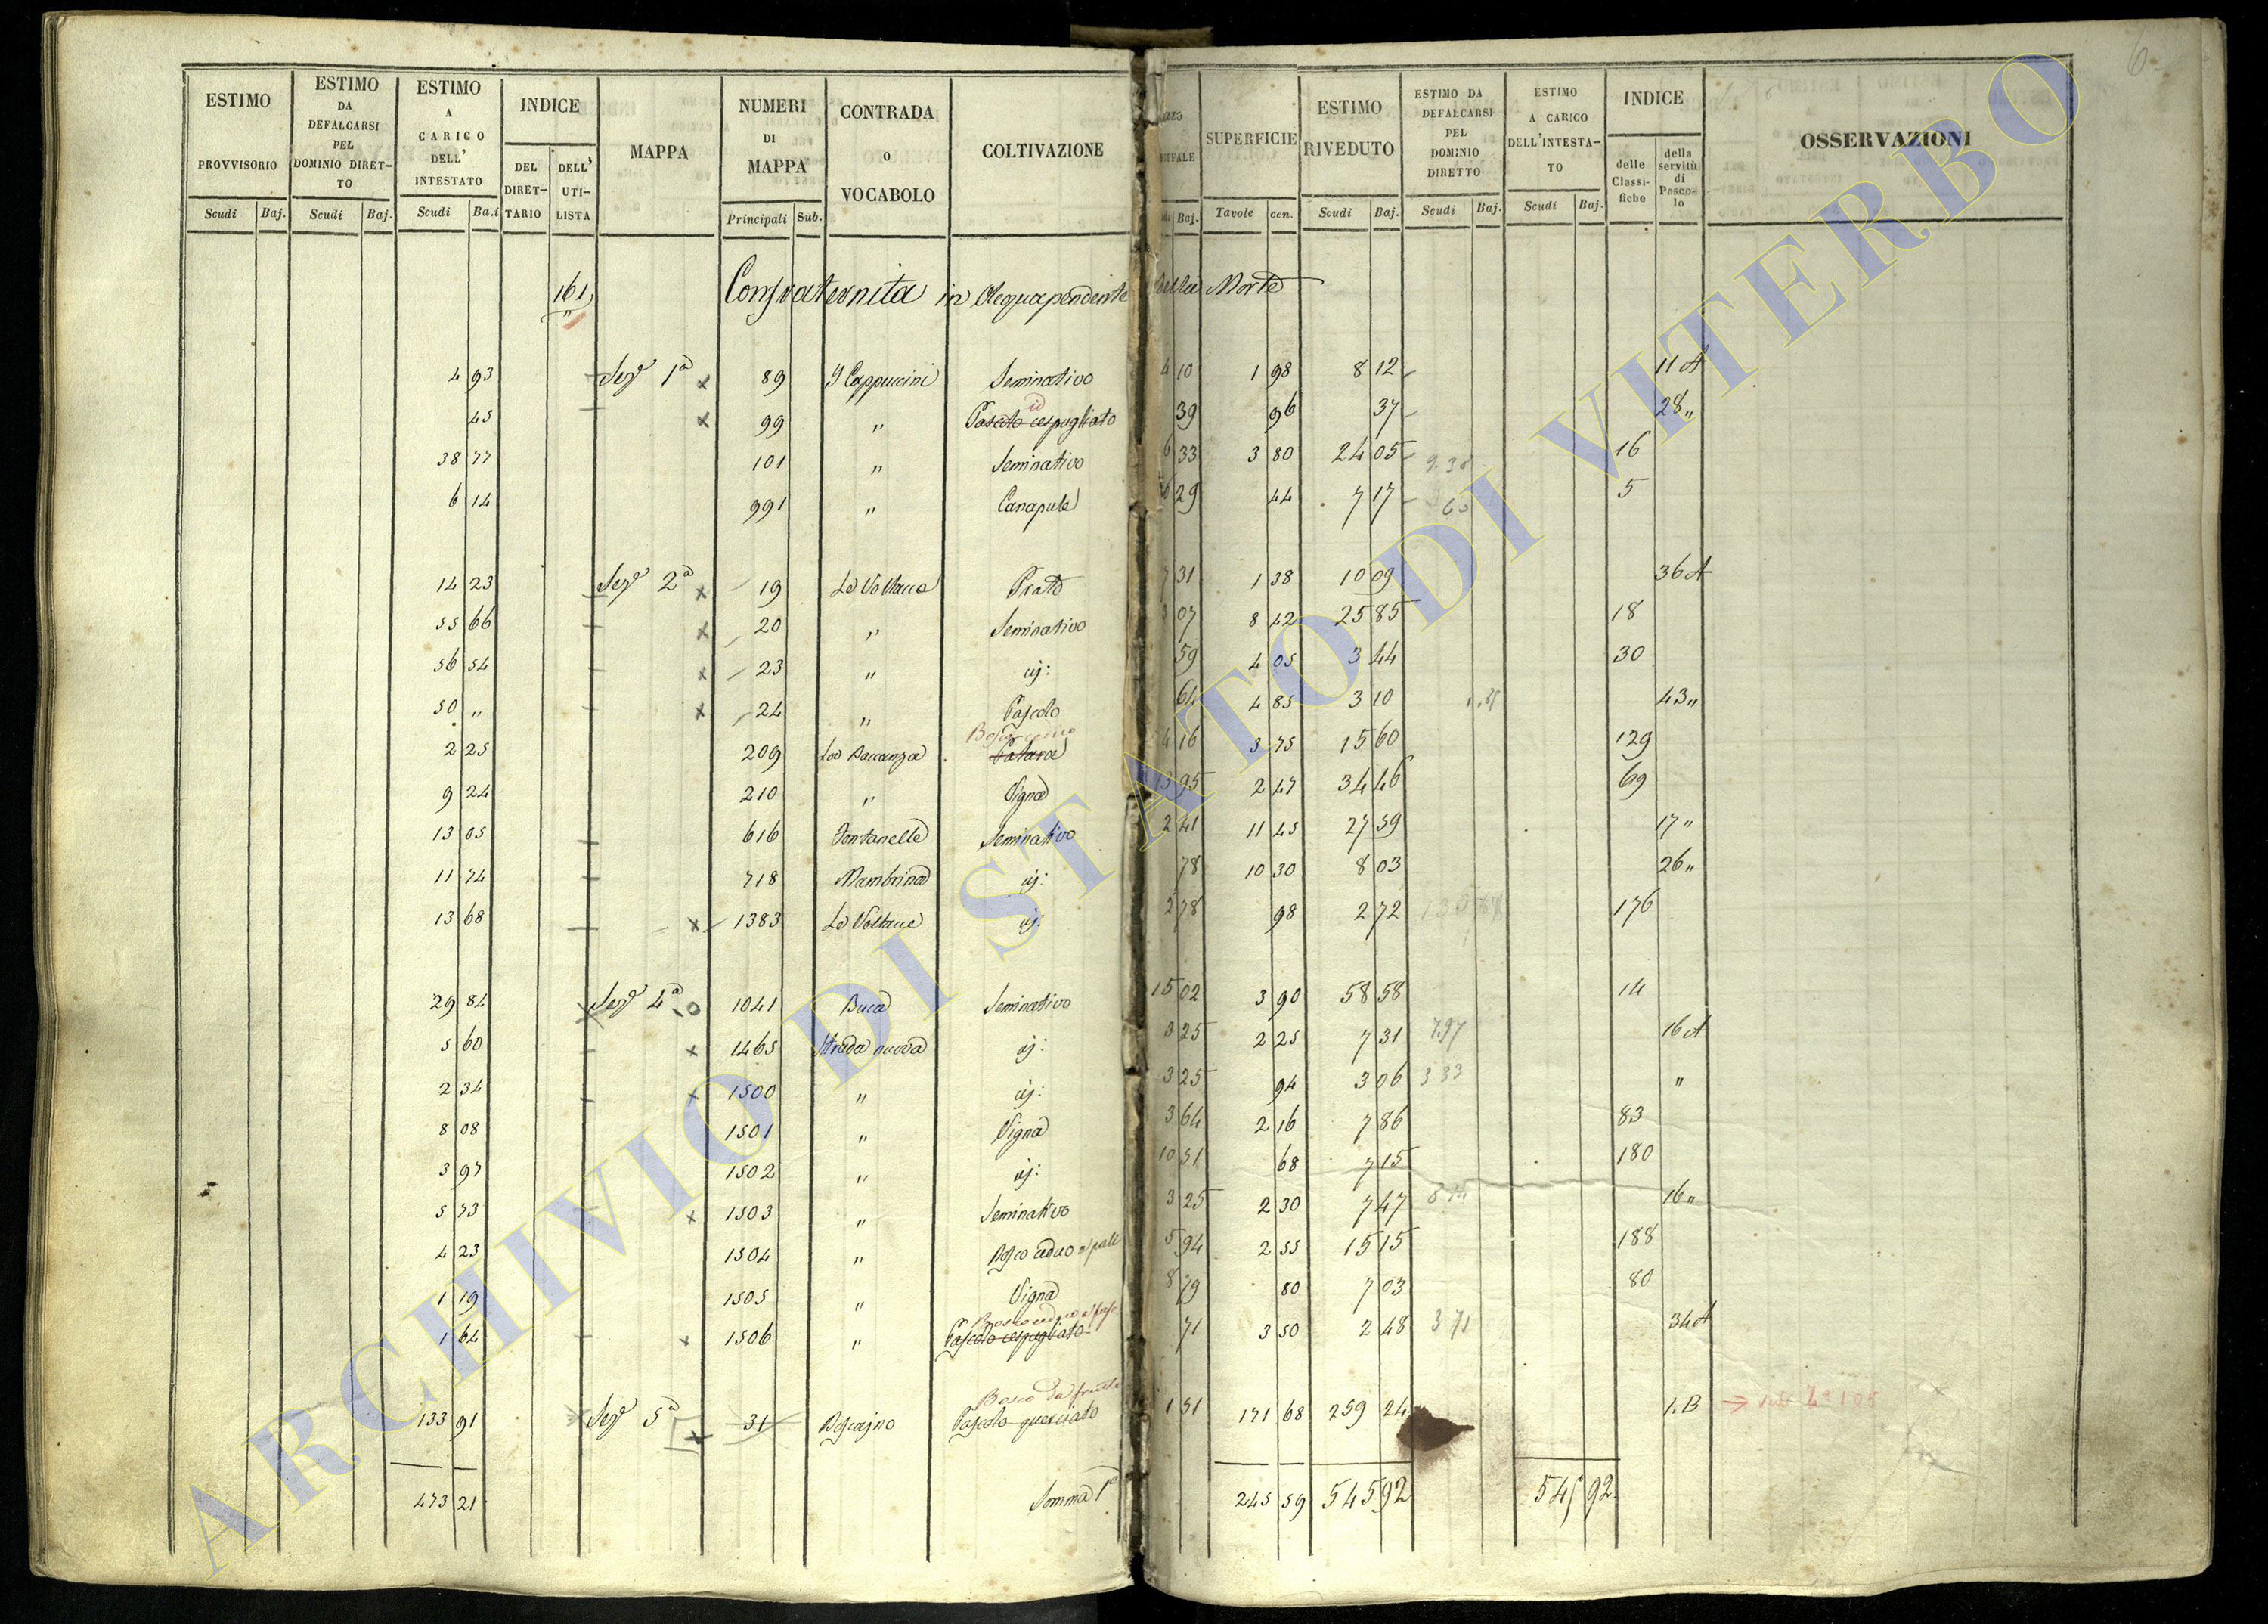 6
ESTIMO PROVVISORIO Scudi Baj.
ESTIMO DA DEFALCARSI PEL DOMINIO DIRETTO Scudi Baj.
ESTIMO A CARICO DELL' INTESTATO Scudi Ba.i
INDICE DEL DIRETTARIO DELL' UTILISTA
MAPPA
NUMERI DI MAPPA Principali Sub.
CONTRADA o VOCABOLO
COLTIVAZIONE
Baj.
SUPERFICIE Tavole cen.
ESTIMO RIVEDUTO Scudi Baj.
ESTIMO DA DEFALCARSI PEL DOMINIO DIRETTO Scudi Baj.
ESTIMO A CARICO DELL'INTESTATO Scudi Baj.
INDICE delle Classifiche della servitù di Pascolo
OSSERVAZIONI
161 Confraternita in Acquapendente della Morte
4 93 Seze 1a x 89 I Cappuccini Seminativo 4 10 1 98 8 12 11 A
45 x 99 " id Pascolo cespugliato 39 96 37 28 "
38 77 101 " Seminativo 6 33 3 80 24 05 16
6 14 991 " Canapule 29 44 7 17 5
14 23 Seze 2a x 19 Le Voltacce Prato 7 31 1 38 10 09 36 A
55 66 x 20 " Seminativo 07 8 42 25 85 18
56 54 x 23 " id: 59 4 05 3 44 30
50 " x 24 " Pascolo 64 4 85 3 10 43 "
2 25 209 La Baccanza 4 16 3 75 15 60 129
9 24 210 " Vigna 13 95 2 47 34 46 69
13 05 616 Fontanelle Seminativo 2 41 11 45 27 59 17 "
11 74 718 Mambrina id: 78 10 30 8 03 26 "
13 68 x 1383 Le Voltacce id: 2 78 98 2 72 176
29 84 Seze 4a 1041 Buca Seminativo 15 02 3 90 58 58 14
5 60 x 1465 Strada nuova id: 3 25 2 25 7 31 16 A
2 34 x 1500 " id: 3 25 94 3 06 3 33 "
8 08 1501 " Vigna 3 64 2 16 7 86 83
3 97 1502 " id: 10 51 68 7 15 180
5 73 x 1503 " Seminativo 3 25 2 30 7 47 16 "
4 23 1504 " Bosco ceduo a pali 5 94 2 55 15 15 188
1 19 1505 " Vigna 8 79 80 7 03 80
1 64 x 1506 " Bosco ceduo Pascolo cespugliato 71 3 50 2 48 3 71 34 A
133 91 Seze 5a x 31 Boscajno Bosco da frutto Pascolo querciato 1 51 171 68 259 24 1. B
473 21 Somma 1a 245 59 545 92 545 92
ARCHIVIO DI STATO DI VITERBO